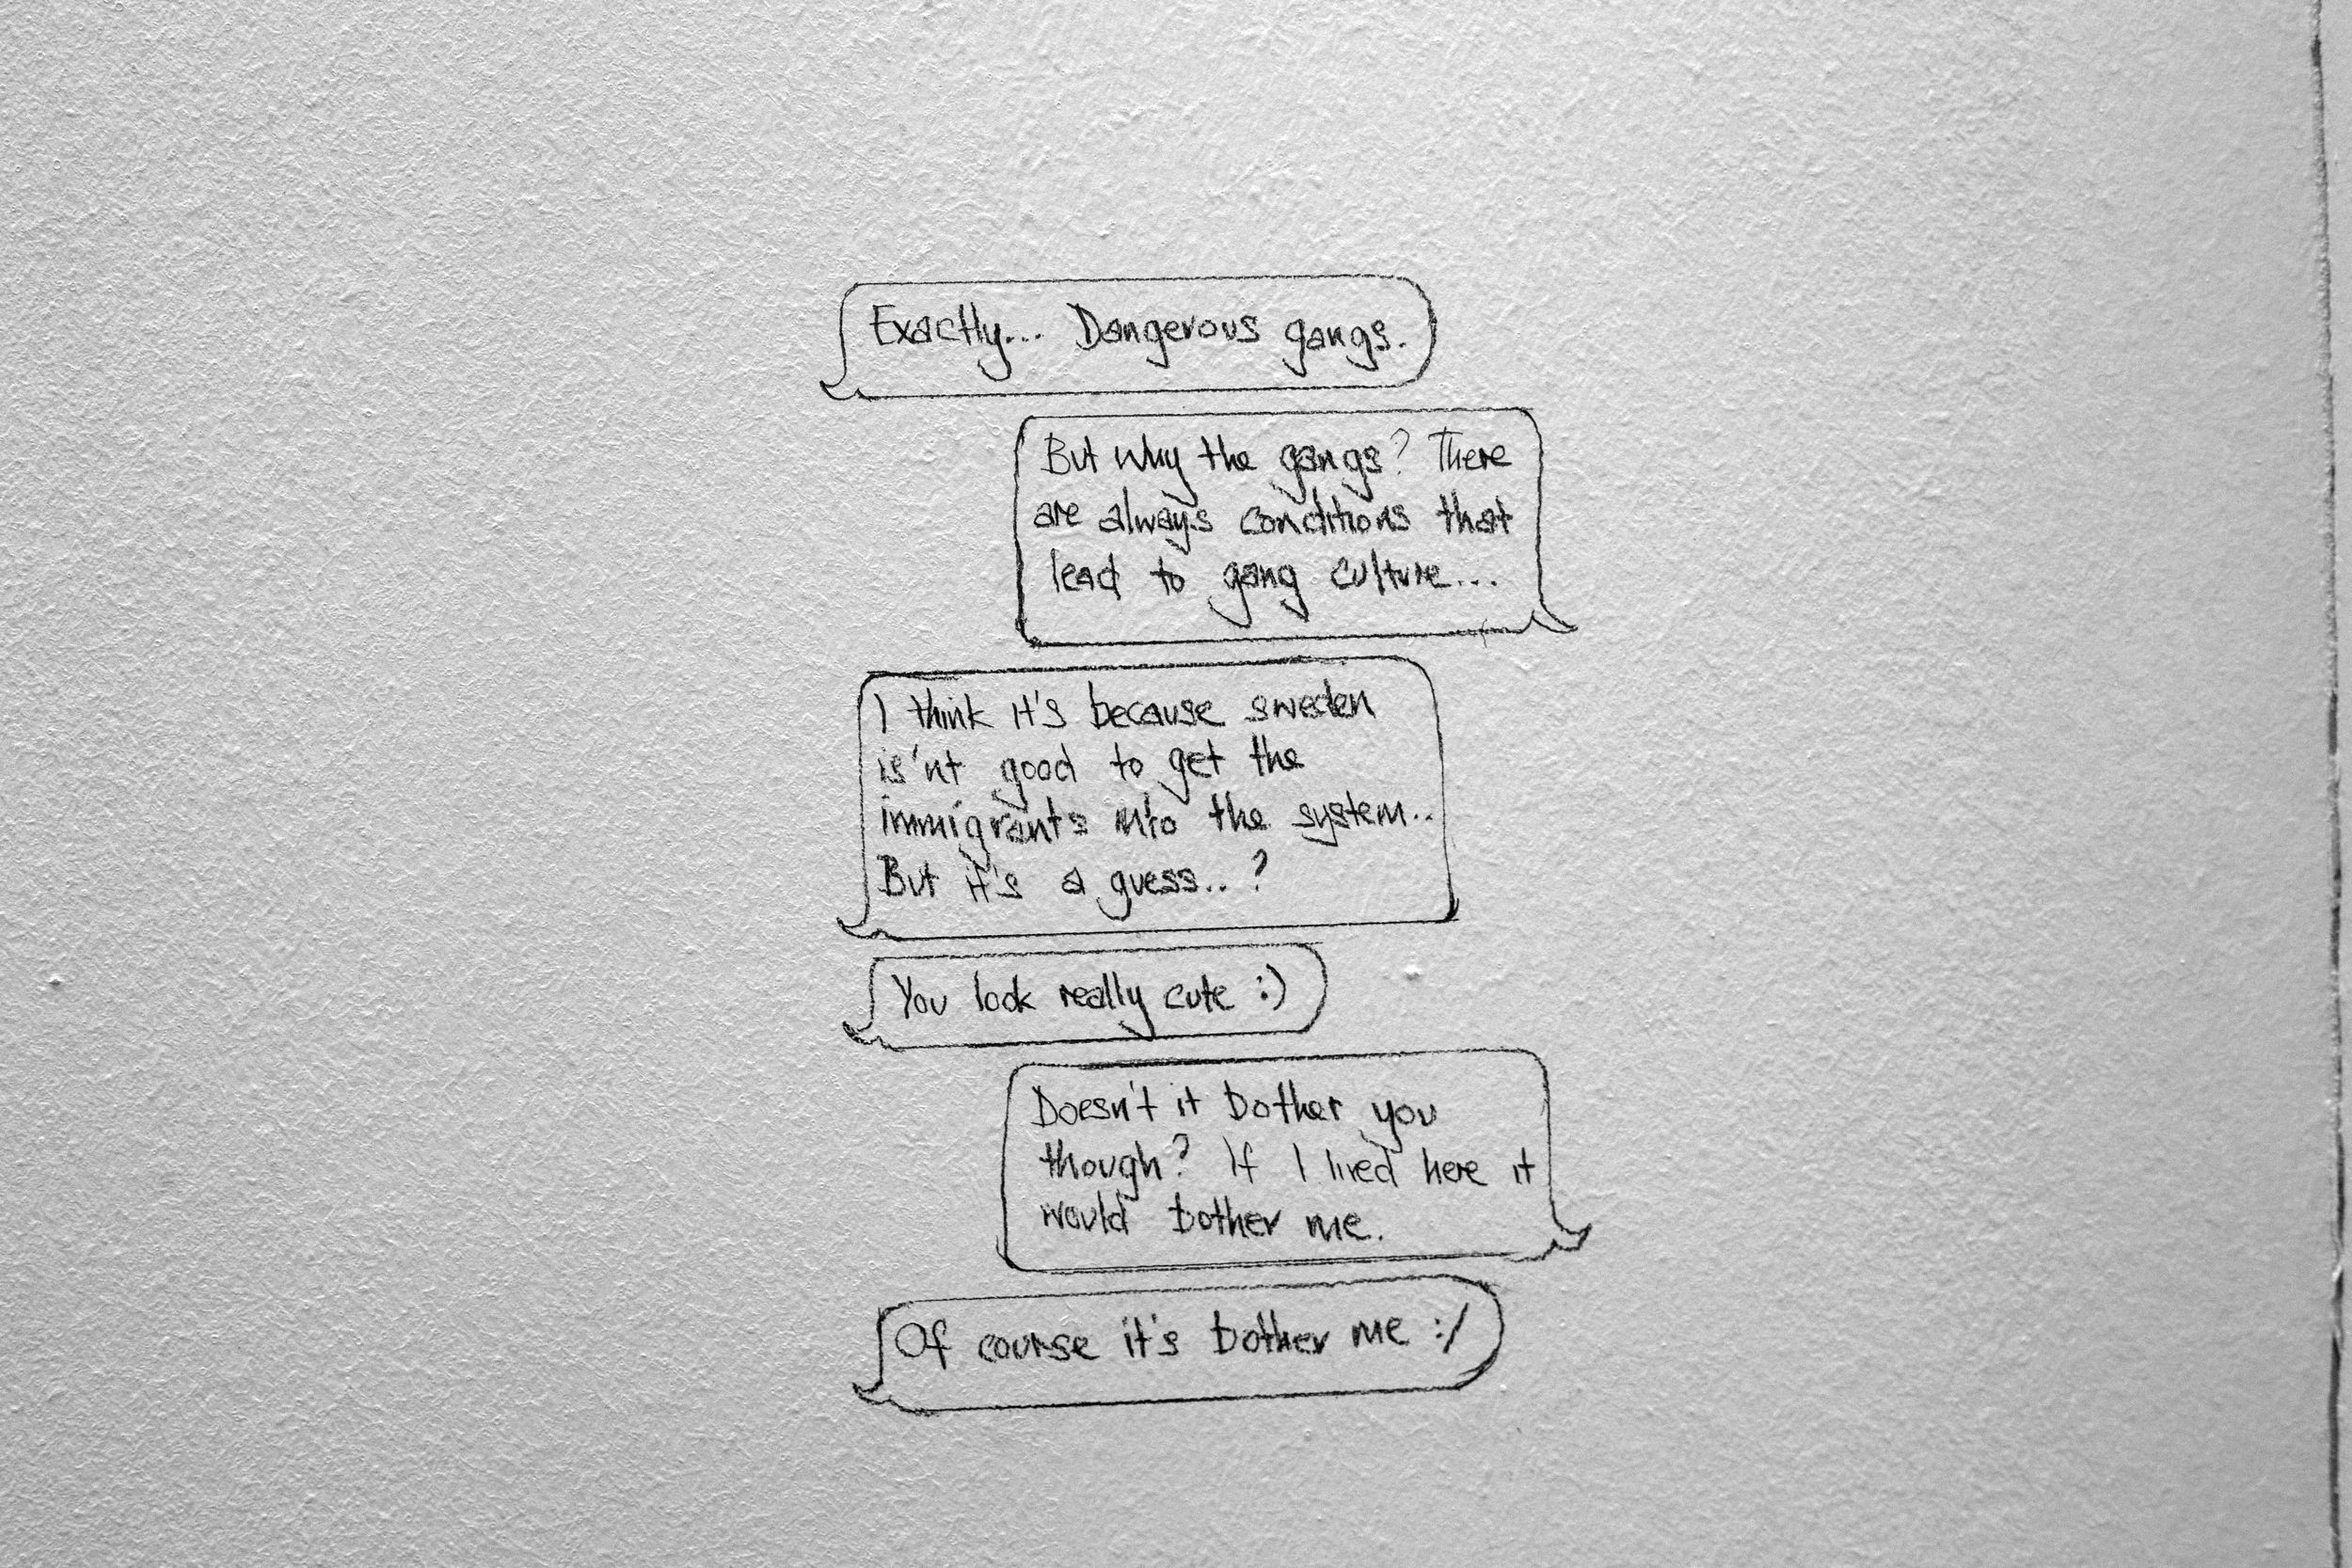 Exactly... Dangerous gangs.
But why the gangs? There
are always conditions that
lead to gang culture...
I think it's because sweden
is'nt good to get the
immigrants into the system..
But it's a guess..?
You look really cute :)
Doesn't it bother you
though? If I lived here it
would bother me.
Of course it's bother me :/